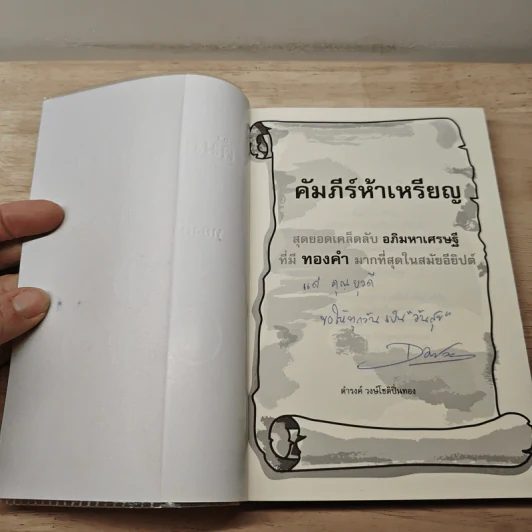 คัมภีร์ห้าเหรียญ
สุดยอดเคล็ดลับ อภิมหาเศรษฐี
ที่มี ทองคำ มากที่สุดในสมัยอียิปต์
แด่ คุณยุวดี
ขอให้ทุกวัน เป็น "วันสุข"
ดำรงค์ วงษ์โชติปิ่นทอง